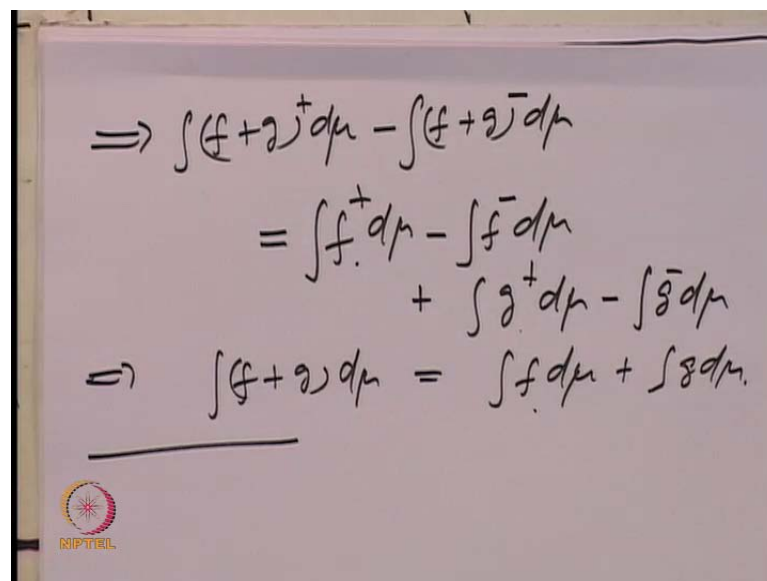 ⇒ ∫(f+g)⁺dμ − ∫(f+g)⁻dμ
= ∫f⁺dμ − ∫f⁻dμ
+ ∫g⁺dμ − ∫g⁻dμ
⇒ ∫(f+g)dμ = ∫f dμ + ∫g dμ.
NPTEL